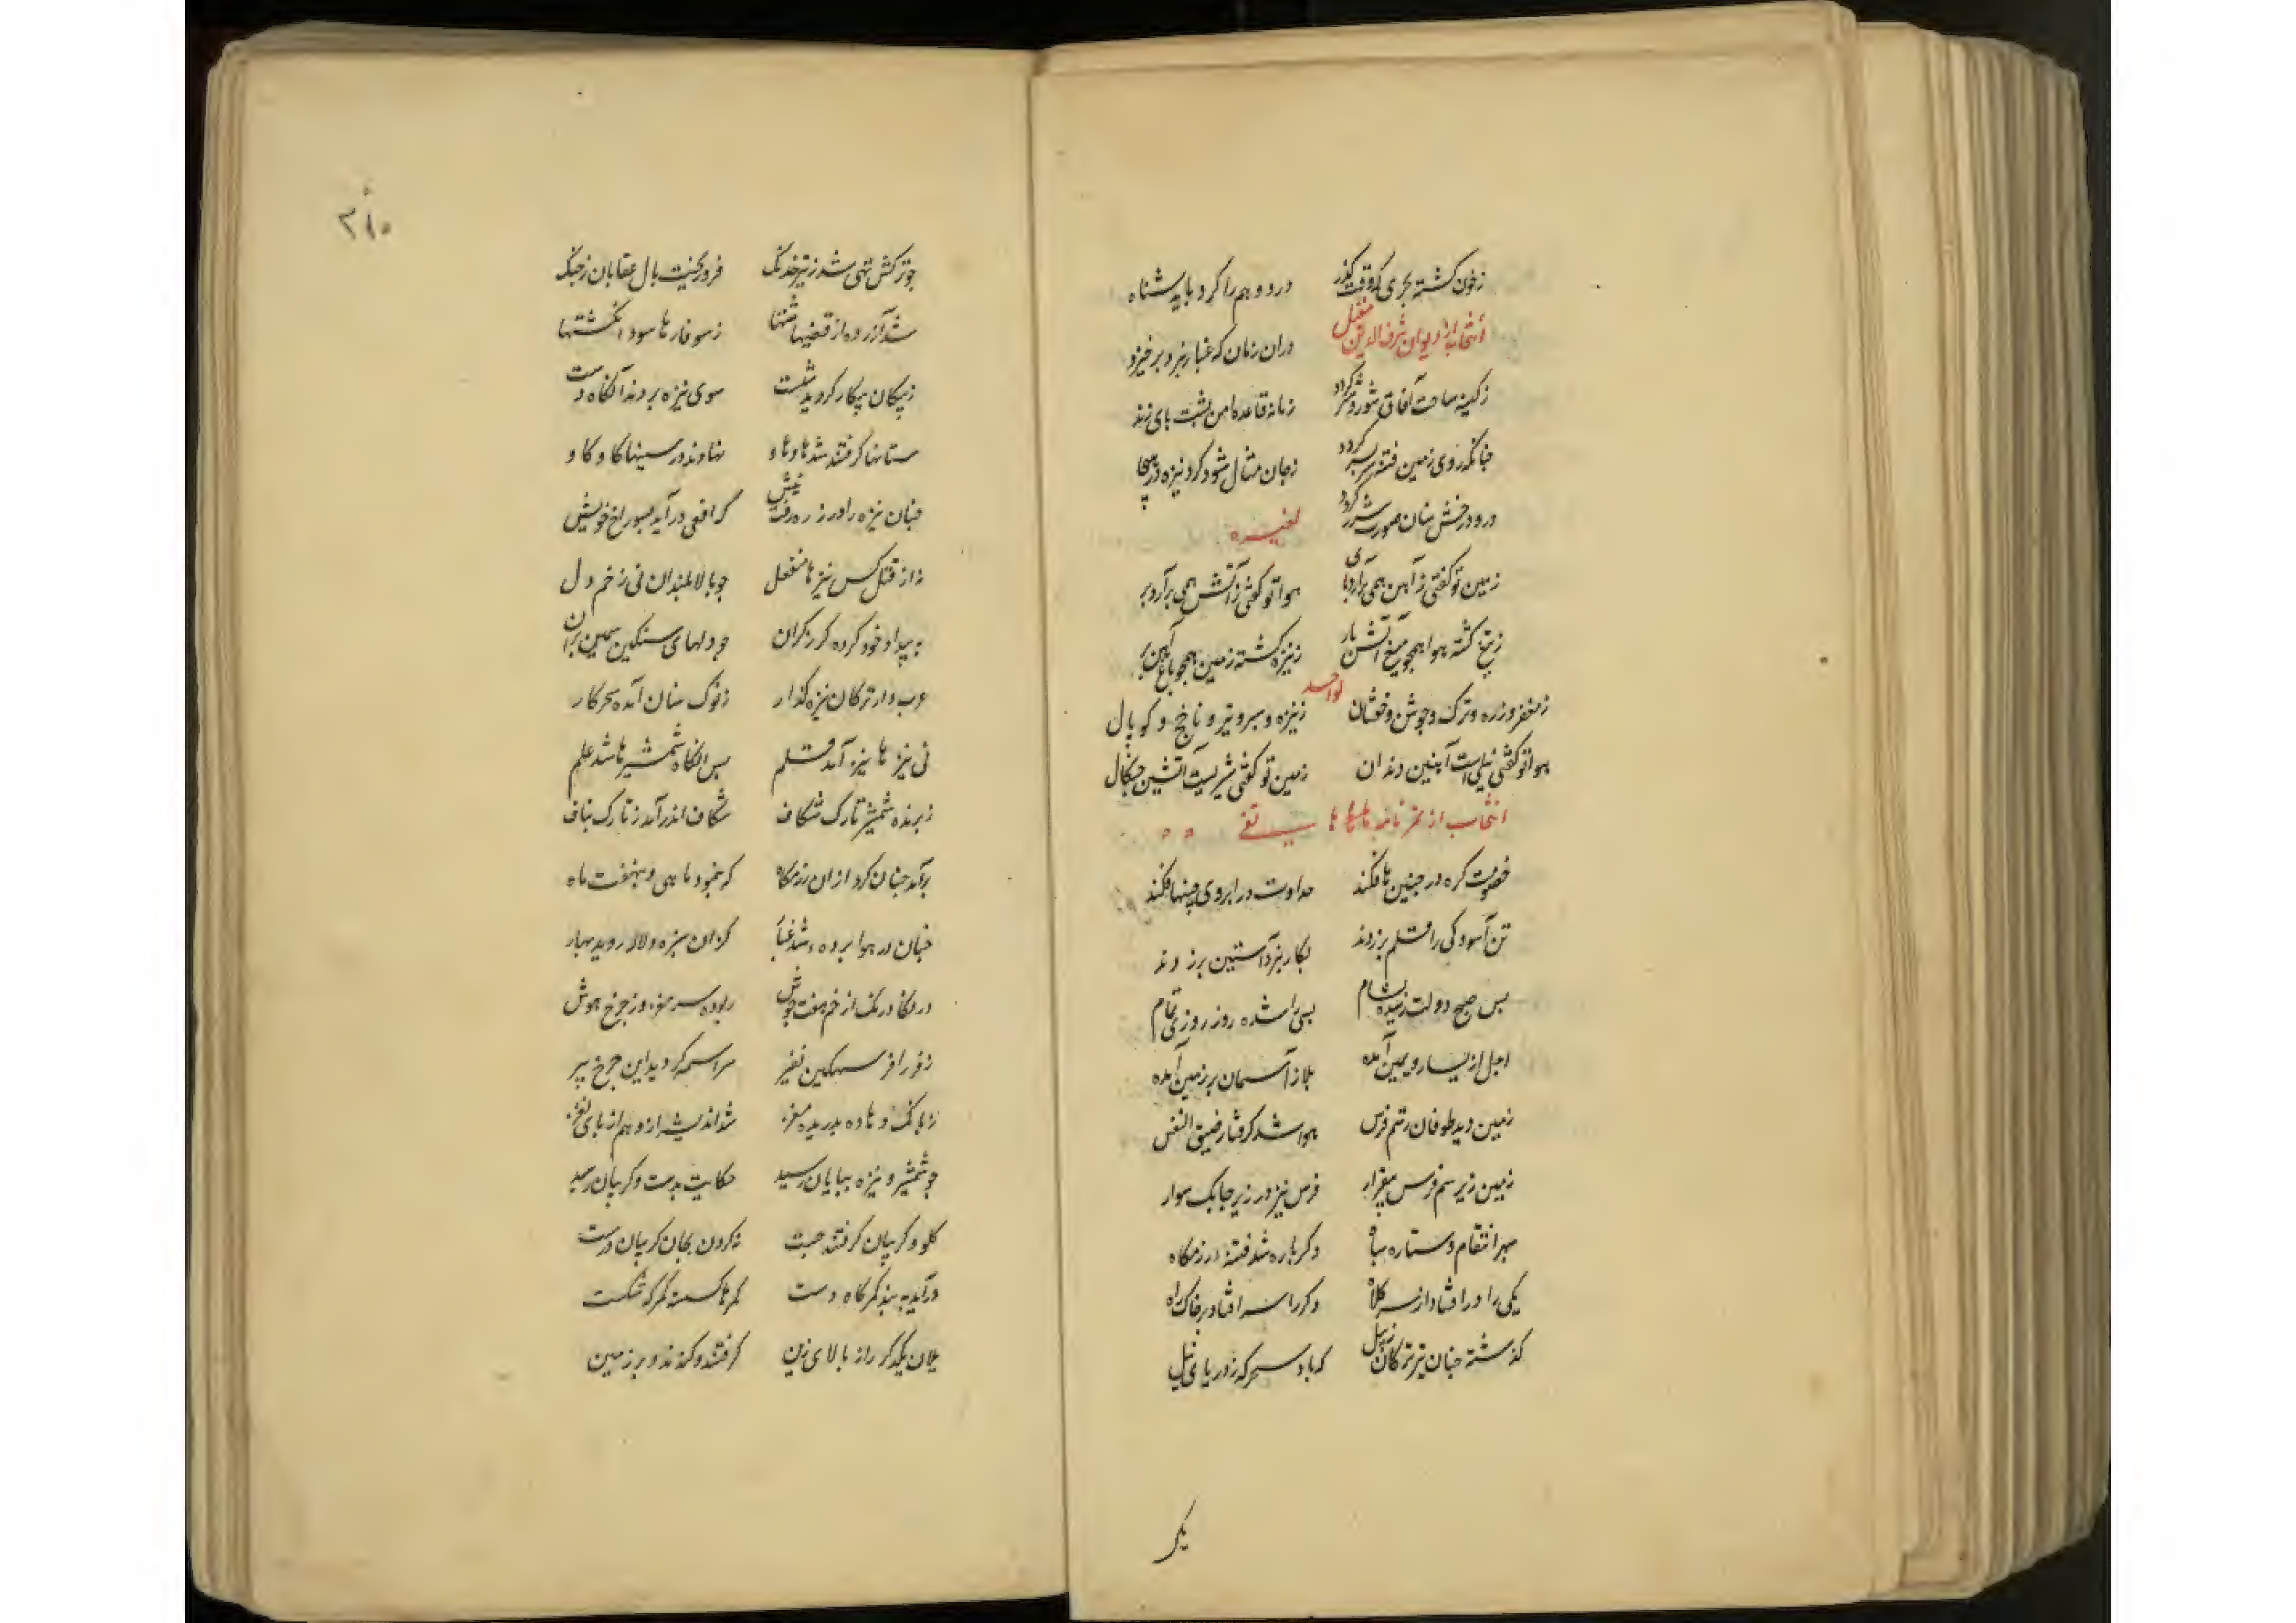 زخون کشته بحری که وقت کذر درو وهم را کرد باید شناه
انتخاب از دیوان شرف الدین دران زمان که غبار نبرد برخیزد
زکینه ساحت آفاق شور و شر کردد زمانه قاعده امن پشت پای زند
جنانکه روی زمین فتنه سر بسر کردد زجان مثال شود کرد نیزه در هیجا
درو درخش سنان صورت شرر کردد لغیره
زمین تو کفتی ز آهن همی برآرد پای هوا تو کوئی ز آتش همی برآرد بر
زتیغ کشته هوا همجو میغ آتش بار زنیزه کشته زمین همجو باغ آهن بر
لواحد
زمغفر و زره و ترک و جوش و خفتان زنیزه و سپر و تیر و ناخج و کوپال
هوا تو کفتی پیلی است آهنین دندان زمین تو کفتی شیریست آتشین جنکال
انتخاب از تمر نامه هاتفی
خصومت کره در جبین ها فکند عداوت در ابروی چینها فکند
تن آسودکی را قلم بر زدند بکار نبرد آستین بر زدند
بس صبح دولت رسیده بشام بسی را شده روز روزی تمام
اجل از یسار و یمین آمده بلا ز آسمان بر زمین آمده
زمین دید طوفان ز سم فرس هوا شد کرفتار ضیق النفس
زمین زیر سم فرس بیقرار فرس نیز در زیر جابک سوار
سپهر انتقام و ستاره سپاه دکر باره شد فتنه در رزمکاه
یکی را در افتاد از سر کلاه دکر را سر افتاد بر خاک راه
کذشته جنان تیر ترکان ز پیل که باد سحرکه ز دریای نیل
یکی
۳۱۰
جو ترکش تهی شد ز تیر خدنک فرو ریخت بال عقابان ز جنک
شد آزرده از قبضها مشتها ز سوفارها سود انکشتها
ز پیکان پیکار کردید شست سوی نیزه بردند آنکاه دست
سنانها کرفتند شد داو داو نهادند در سینها کاو کاو
جنان نیزه را در زره رفت نیش که افعی در آید بسوراخ خویش
نه از قتل کس نیزها منفعل جو بالا بلندان نی زخم دل
به بیداد خود کرده کرز کران جو دلهای سنکین سیمین بران
عرب وار ترکان نیزه کذار ز نوک سنان آمده سحرکار
نی نیزها نیز آمد قلم پس آنکاه شمشیرها شد علم
ز برنده شمشیر تارک شکاف شکاف اندر آمد ز تارک بناف
برآمد جنان کرد از ان رزمکاه که بنمود ماهی و بنهفت ماه
جنان در هوا برده شد غبار کز ان سبزه و لاله روید بهار
درنکا درنک از خم هفت جوش ربوده سر مغز وز جرخ هوش
ز غر را غر سهمکین نفیر سراسیمه کردید این جرخ پیر
ز بانک و هاده بدریده مغز شد اندیشه از وهم از پای نغز
جو شمشیر و نیزه بپایان رسید حکایت بدست و کریبان رسید
کلو و کریبان کرفتند جست نه کردن بجان کریبان درست
درآمد به بند کمرکاه دست کمرها کسسته کمرکه شکست
یلان یکدکر را ز بالای زین کرفتند و کندند و بر زمین